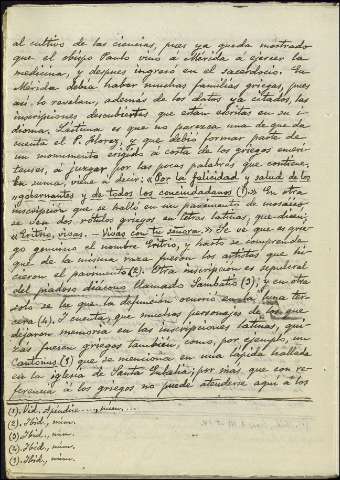 al cultivo de las ciencias, pues ya queda mostrado
que el obispo Paulo vino á Mérida á ejercer la
medicina, y despues ingresó en el sacerdocio. En
Mérida debía haber muchas familias griegas, pues
así lo revelan, además de los datos ya citados, las
inscripciones descubiertas que están escritas en su i-
dioma. Lástima es que no parezca una de que da
cuenta el P. Florez, y que debió formar parte de
un monumento erigido á costa de los griegos emeri-
tenses, á juzgar por las pocas palabras que contiene.
En suma, viene á decir: "Por la felicidad y salud de los
gobernantes y de todos los conciudadanos (1)." En otra
inscripcion que se halló en un pavimento de mosáico
se ven dos rótulos griegos en letras latinas, que dicen:
vivas. - Vivas con tu señora." Se ve que es grie-
go genuino el nombre y harto se comprende
que de la misma raza fueron los artistas que hi-
cieron el pavimento (2). Otra inscripcion es sepulcral
del piadoso diácono llamado Sambatio (3); y en otra
solo se lee que la defuncion ocurrió en la luna ter-
cera (4). I cuenta, que muchos personajes de los que
dejaron memoria en las inscripciones latinas, qui-
zás fuesen griegos también, como, por ejemplo, un
Cantonus (5) que se menciona en una lápida hallada
en la iglesia de Santa Eulalia; por más que con re-
ferencia á los griegos no puede atenderse aquí á los
(1). Vid. Apéndice ..., núm. ...
(2). Ibid., núm.
(3). Ibid., núm.
(4). Ibid., núm.
(5). Ibid., núm.